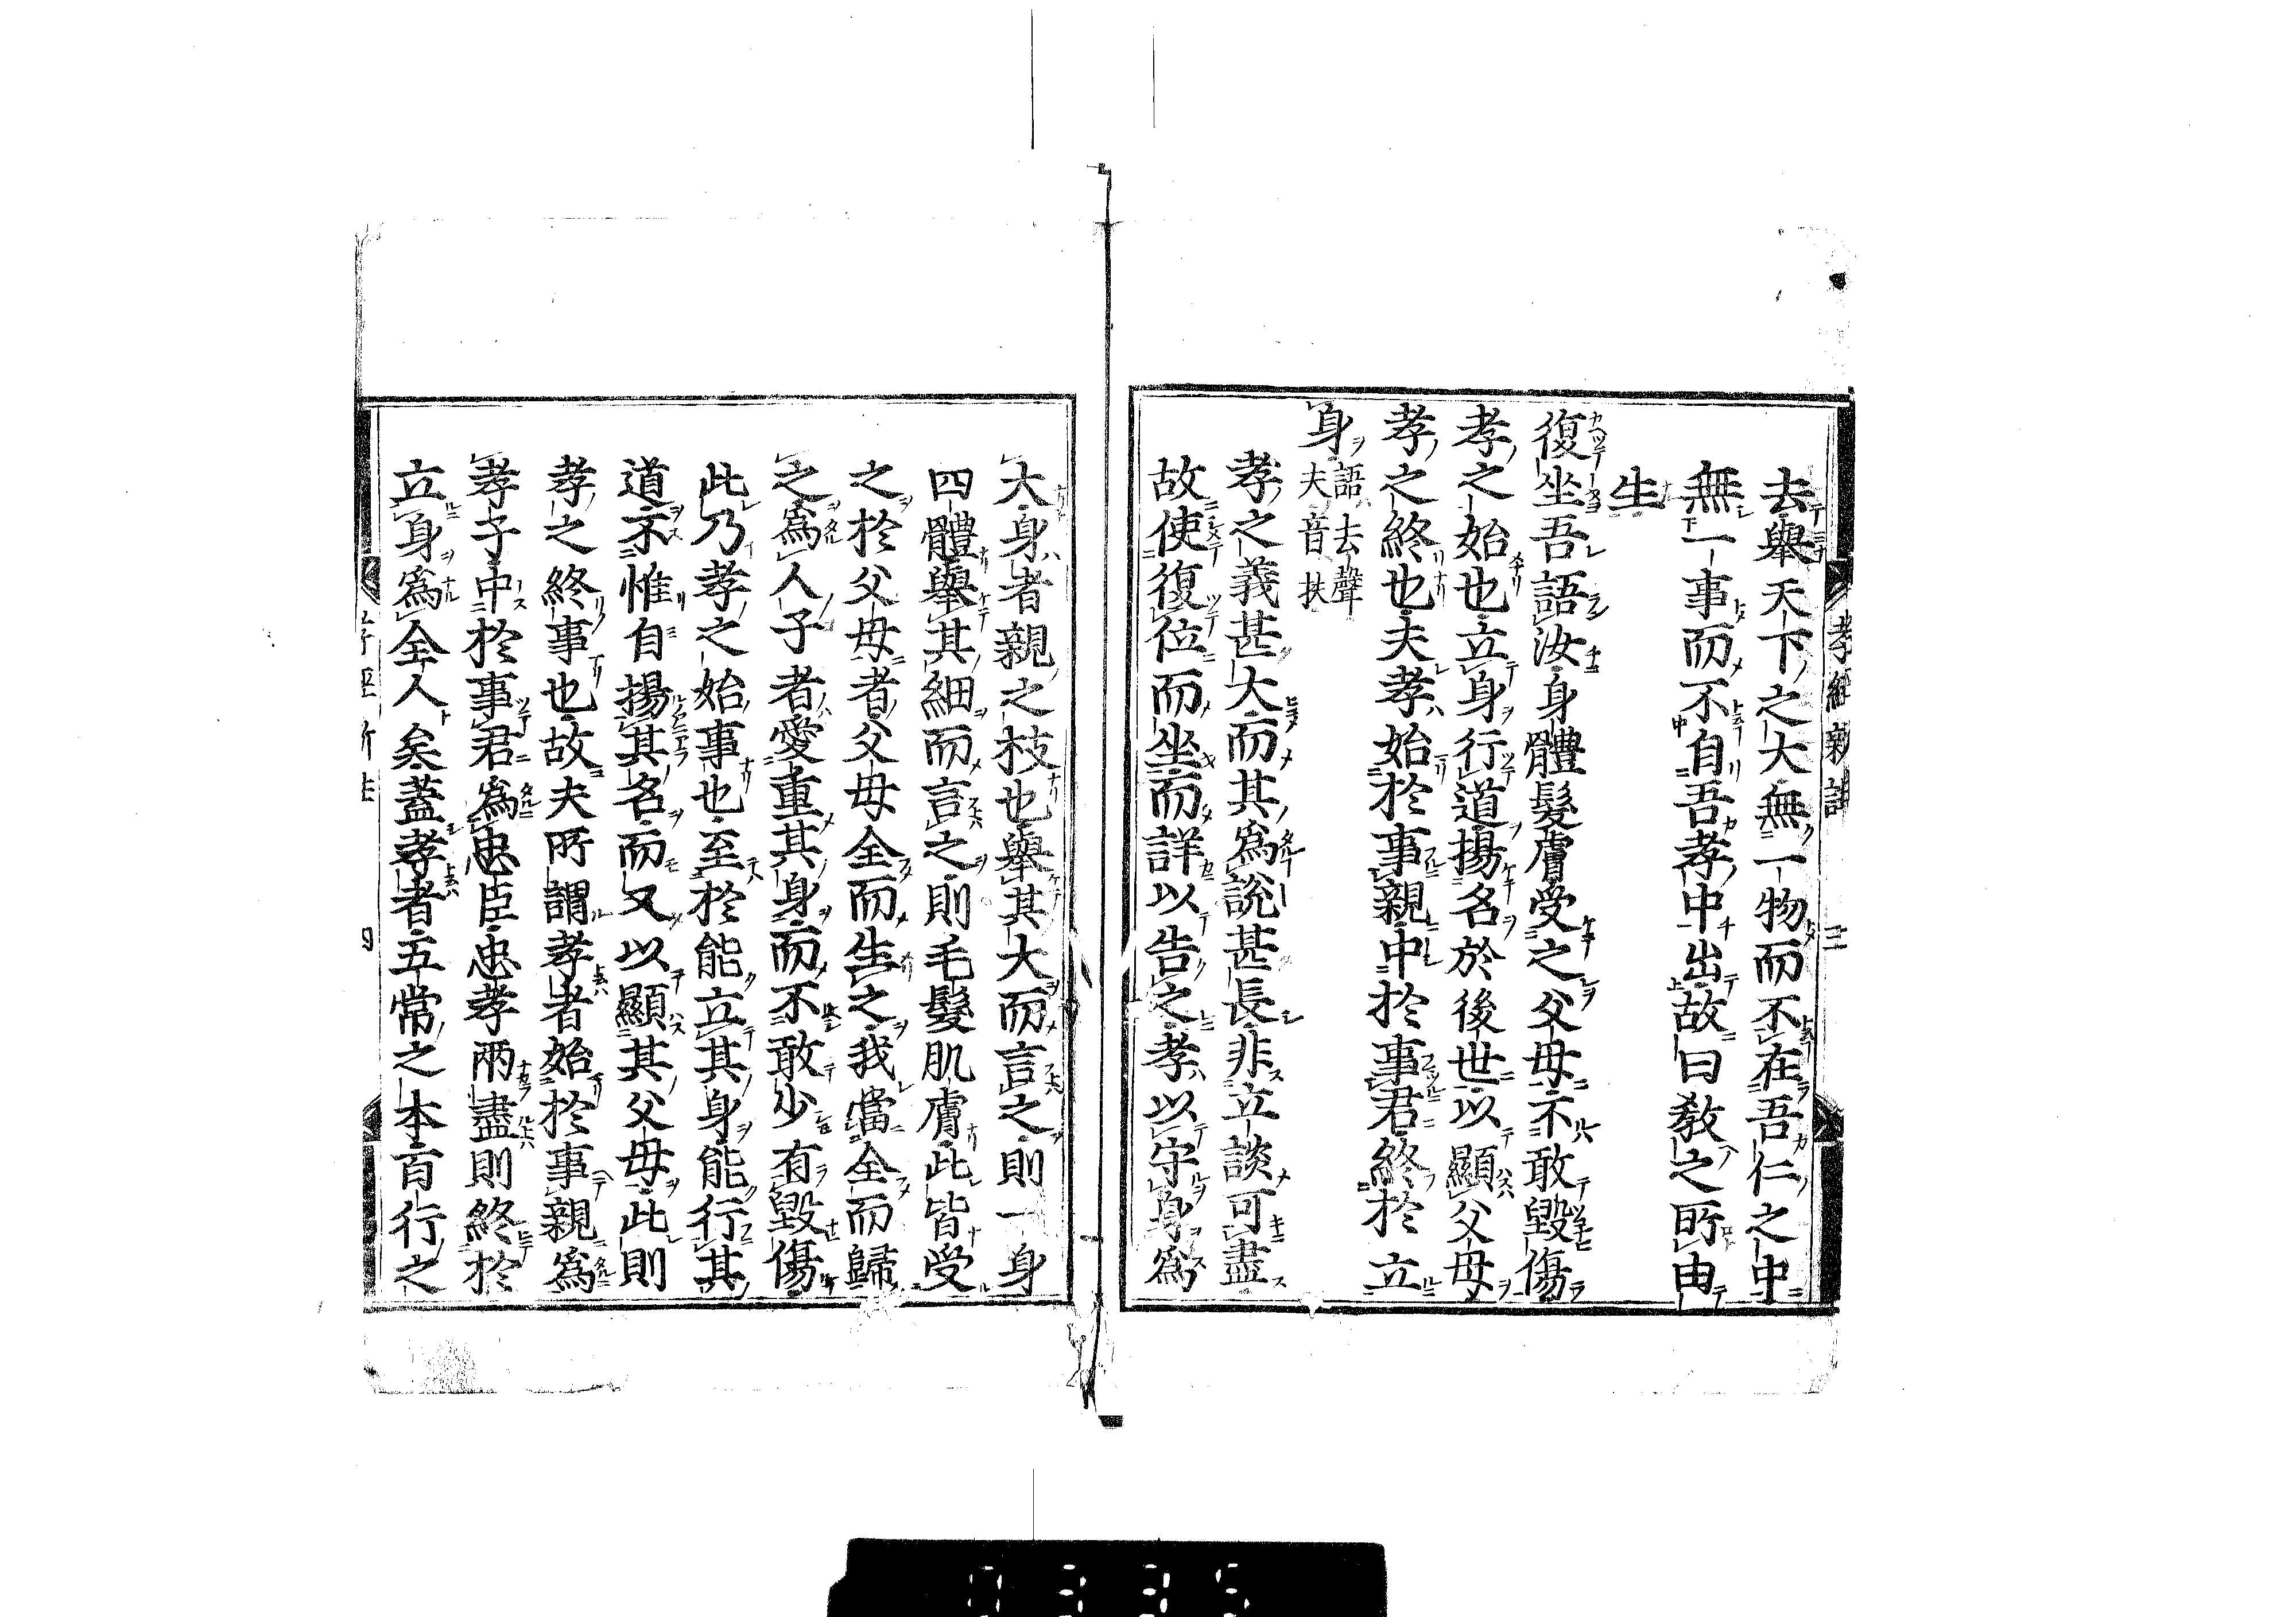 去舉天下之大無一物而不在吾仁之中
無一事而不自吾孝中出故曰敎之所由
生
復坐吾語汝身體髮膚受之父母不敢毀傷
孝之始也立身行道揚名於後世以顯父母
孝之終也夫孝始於事親中於事君終於立
身語去聲夫音扶
孝之義甚大而其爲說甚長非立談可盡
故使復位而坐而詳以告之孝以守身爲
大身者親之枝也舉其大而言之則一身
四體舉其細而言之則毛髮肌膚此皆受
之於父母者父母全而生之我當全而歸
之爲人子者愛重其身而不敢少有毀傷
此乃孝之始事也至於能立其身能行其
道不惟自揚其名而又以顯其父母此則
孝之終事也故夫所謂孝者始於事親爲
孝子中於事君爲忠臣忠孝兩盡則終於
立身爲全人矣蓋孝者五常之本百行之